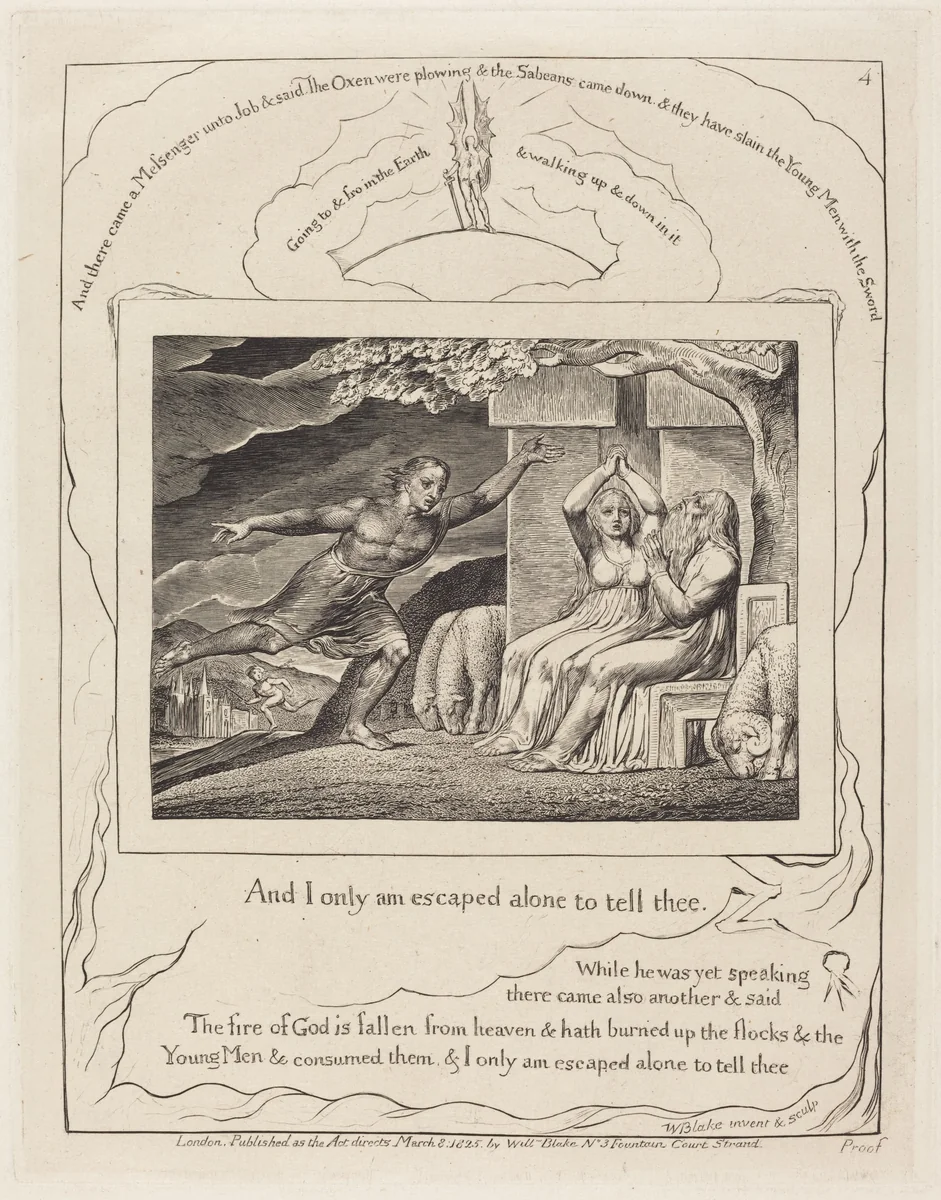 4
And there came a Messenger unto Job & said The Oxen were plowing & the Sabeans came down & they have slain the Young Men with the Sword
Going to & fro in the Earth
& walking up & down in it
And I only am escaped alone to tell thee.
While he was yet speaking
there came also another & said
The fire of God is fallen from heaven & hath burned up the flocks & the
Young Men & consumed them, & I only am escaped alone to tell thee
WBlake invent & sculp
London. Published as the Act directs March 8: 1825. by Will<sup>m</sup> Blake N<sup>o</sup> 3 Fountain Court Strand.
Proof